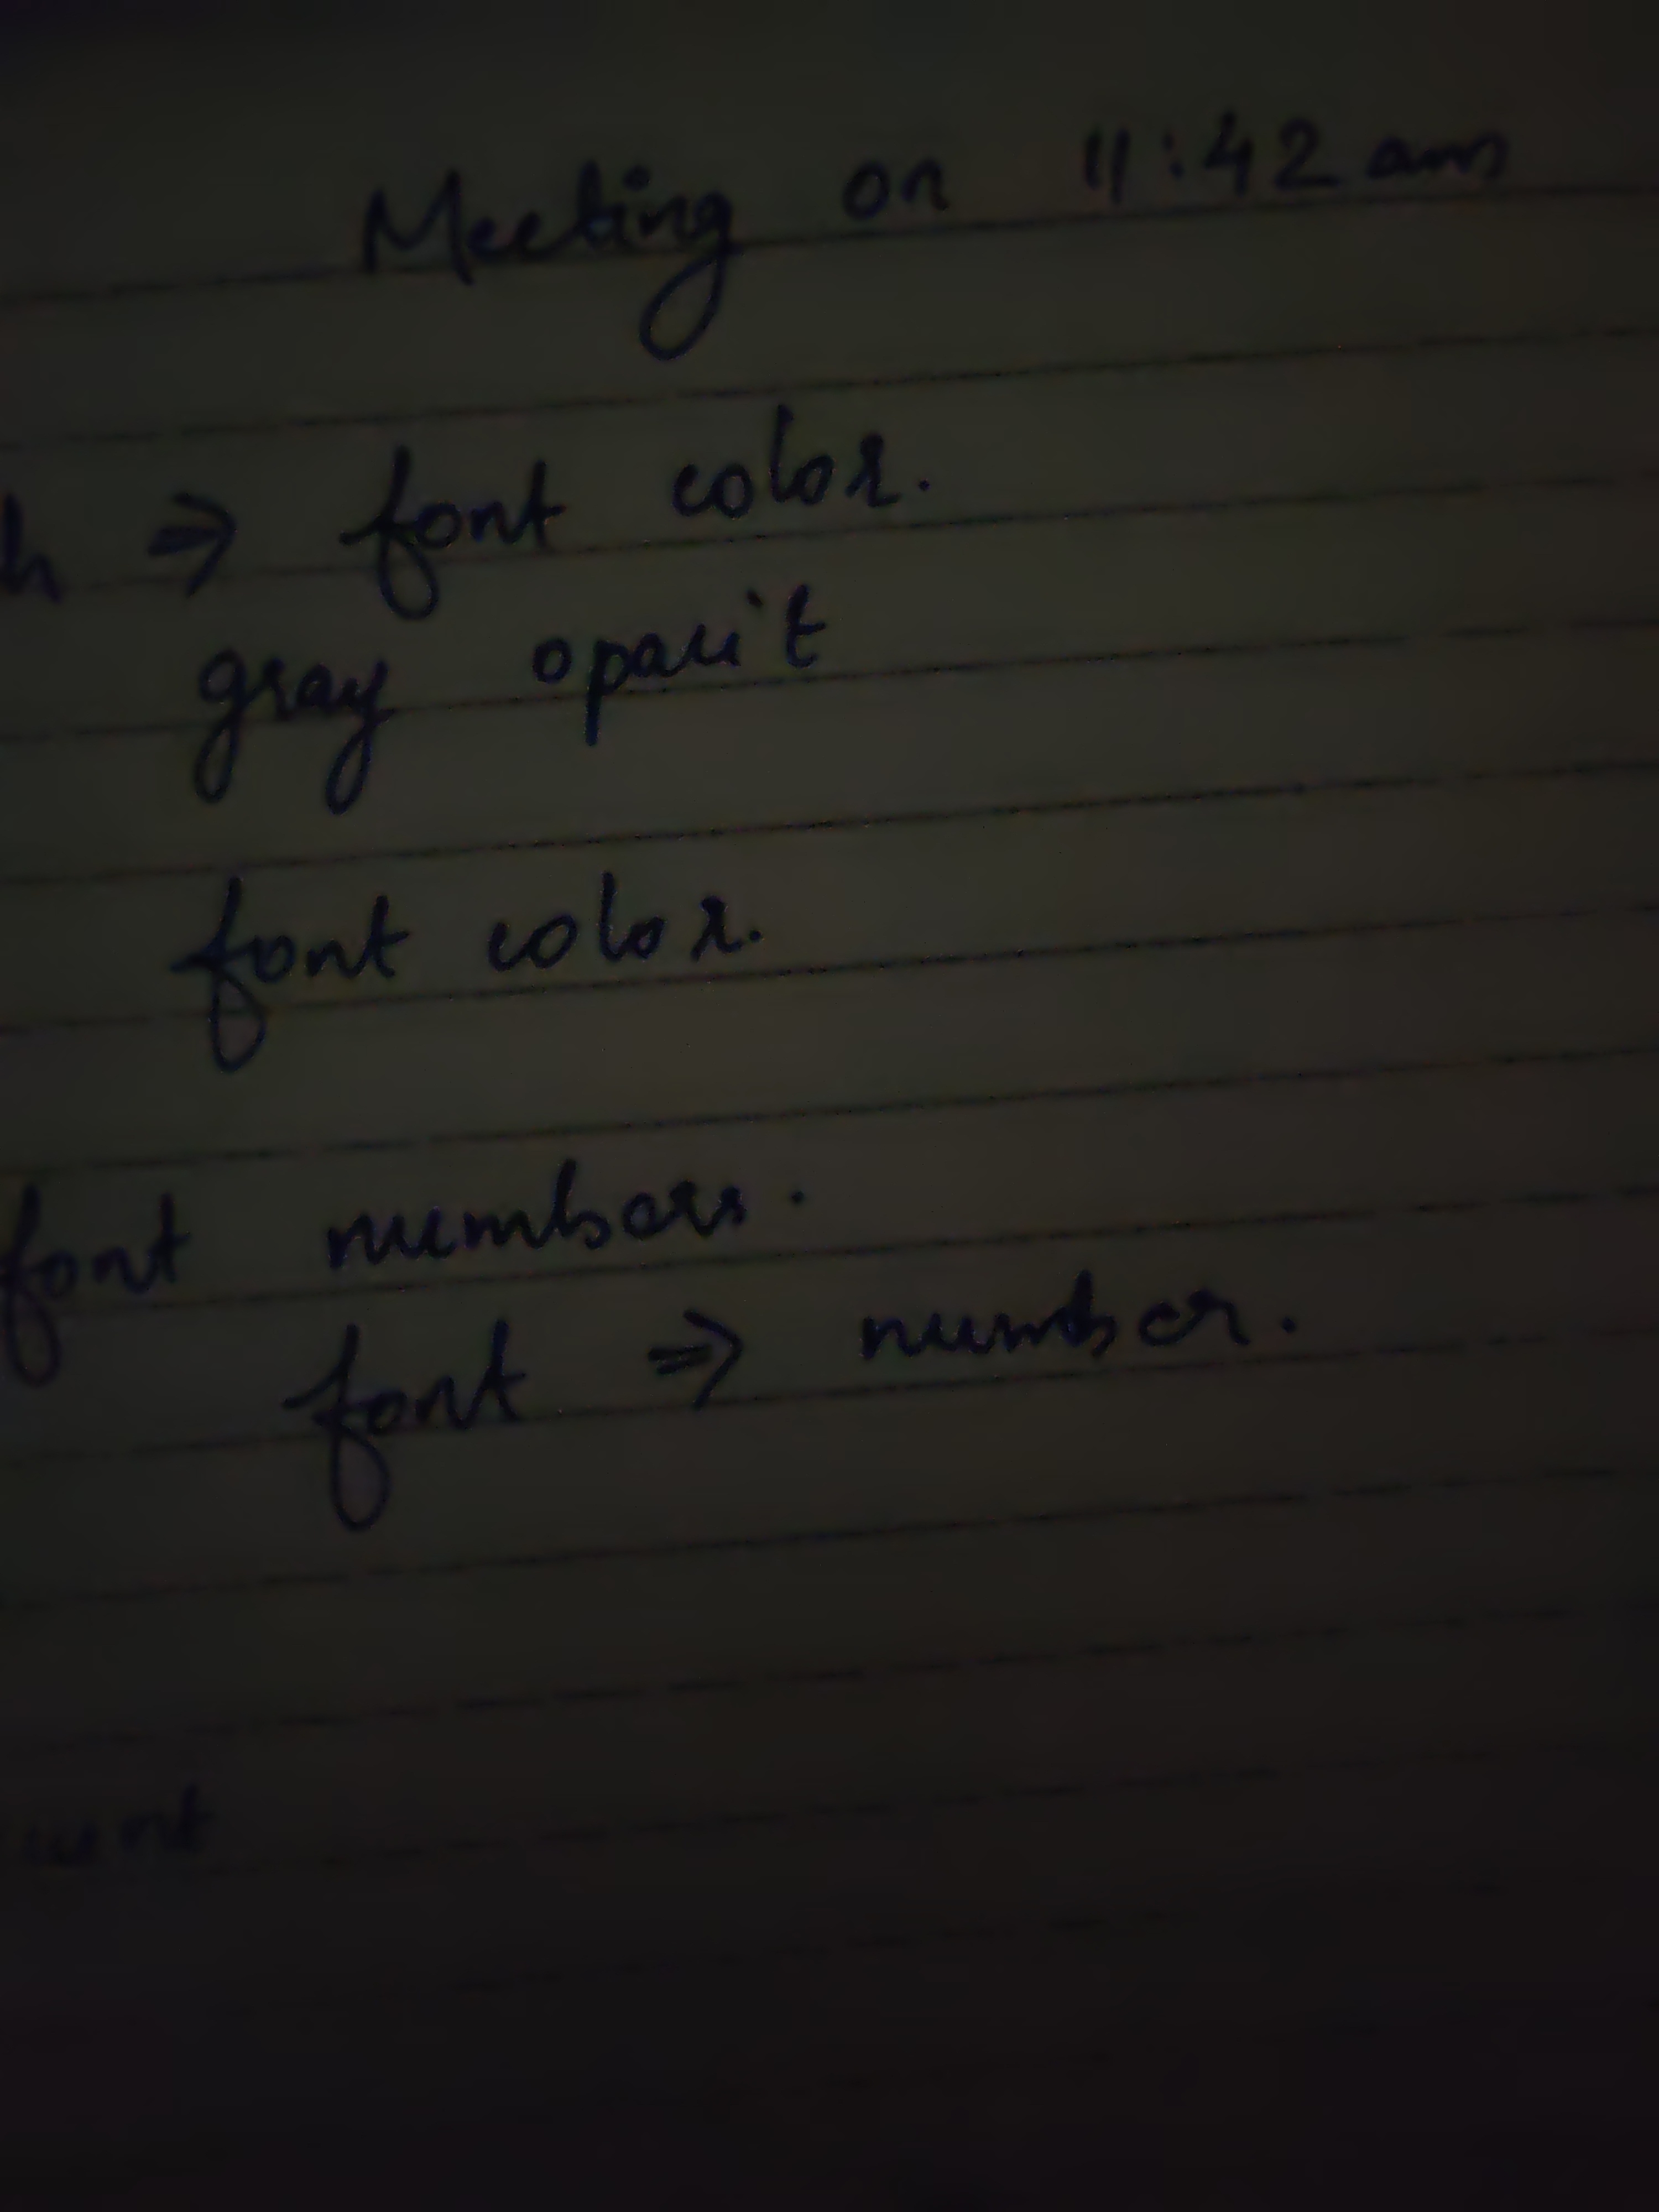 Meeting on 11:42 am
h ⇒ font color.
gray opacit
font color.
font numbers.
font ⇒ number.